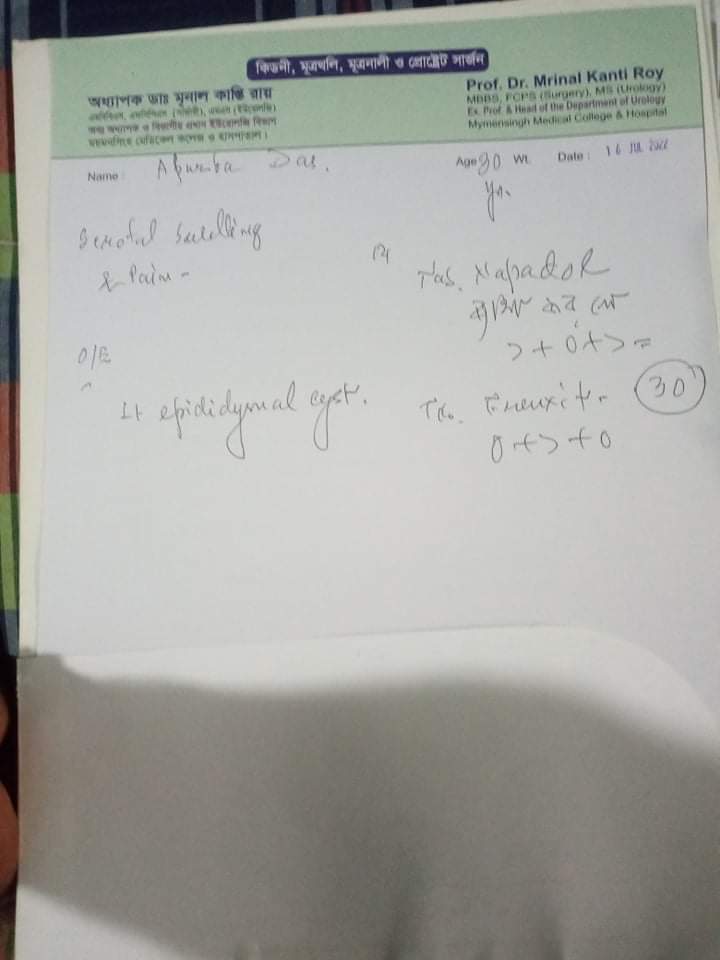 কিডনী, মূত্রথলি, মূত্রনালী ও প্রোষ্টেট সার্জন
অধ্যাপক ডাঃ মৃনাল কান্তি রায়
এমবিবিএস, এফসিপিএস (সার্জারী), এমএস (ইউরোলজি)
প্রাক্তন অধ্যাপক ও বিভাগীয় প্রধান ইউরোলজি বিভাগ
ময়মনসিংহ মেডিকেল কলেজ ও হাসপাতাল।
Prof. Dr. Mrinal Kanti Roy
MBBS, FCPS (Surgery), MS (Urology)
Ex. Prof. & Head of the Department of Urology
Mymensingh Medical College & Hospital
Name : Apurba Das.
Age 30 yrs. Wt. Date : 16 JUL 2022
Scrotal Swelling
& Pain -
O/E
Lt epididymal cyst.
Tab. Napadol
১ + ০ + ১ =
Tab.
০ + ১ + ০
30